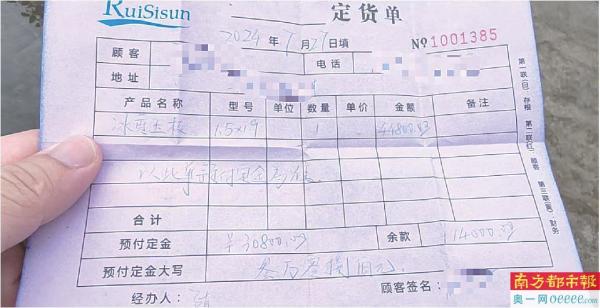 RuiSisun
定货单
2024年7月27日填
№1001385
顾客
电话
地址
产品名称 型号 单位 数量 单价 金额 备注
1.5×19 1 44800.00
以此单
合计
预付定金 ¥30800.00 余款 14000.00
预付定金大写
经办人：
顾客签名：
第一联(白)存根 第二联(红)顾客 第三联(黄)财务
南方都市报
奥一网oeeee.com